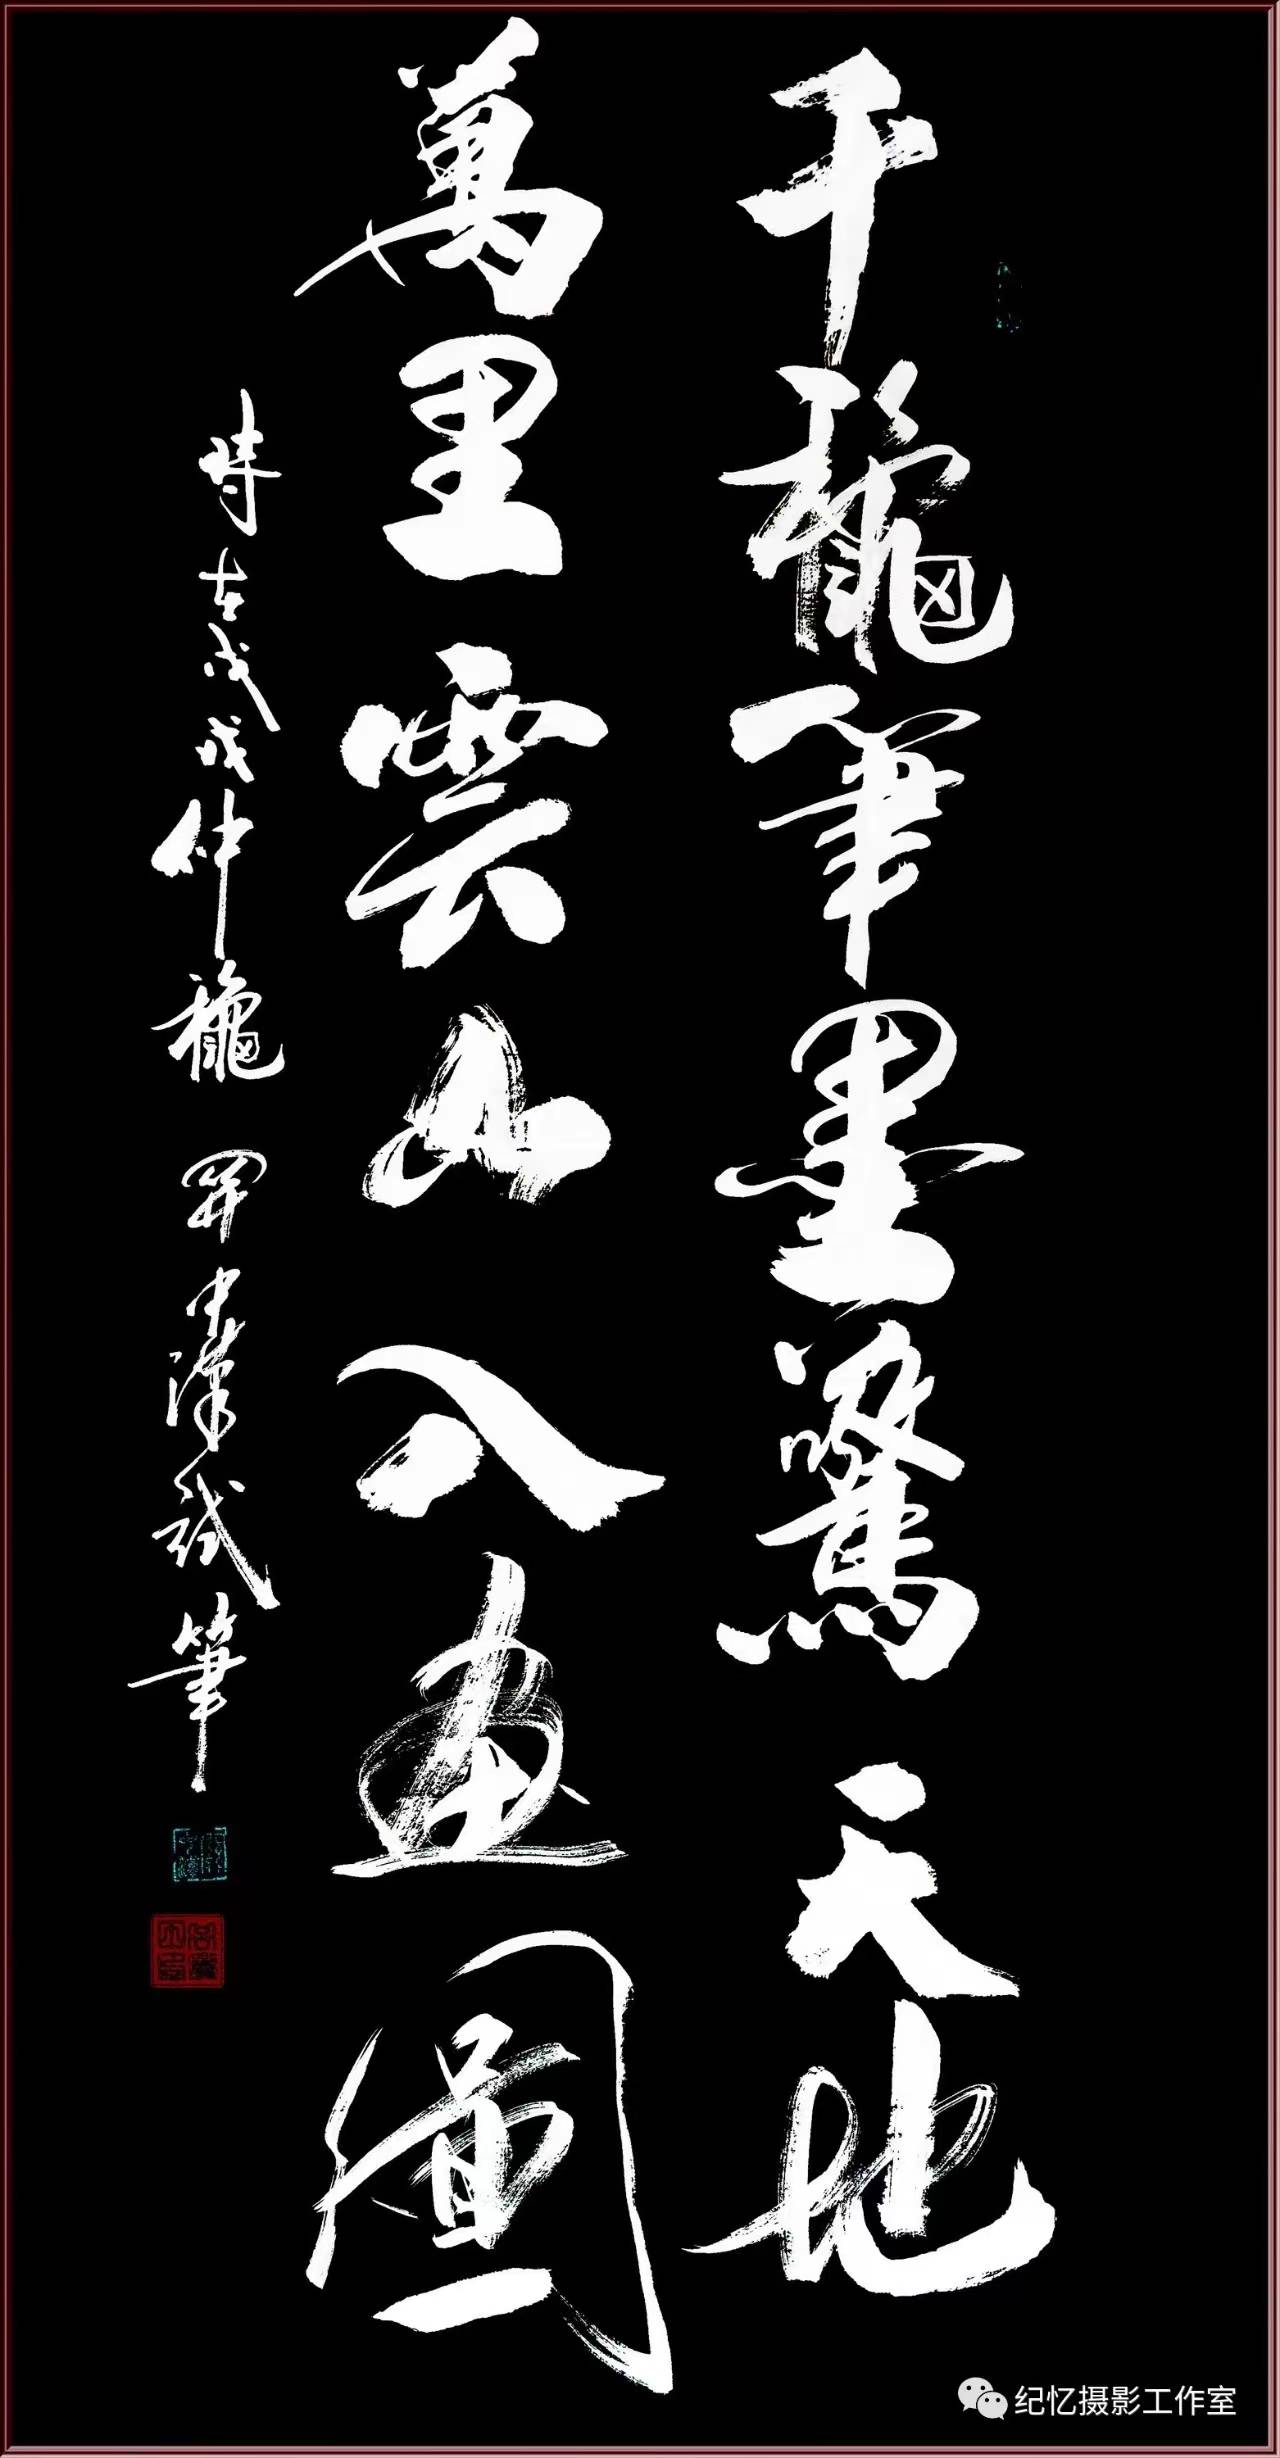 千龝筆墨驚天地
萬里雲山入畫圖
時在戊戌仲龝 關中漢斌筆
纪忆摄影工作室